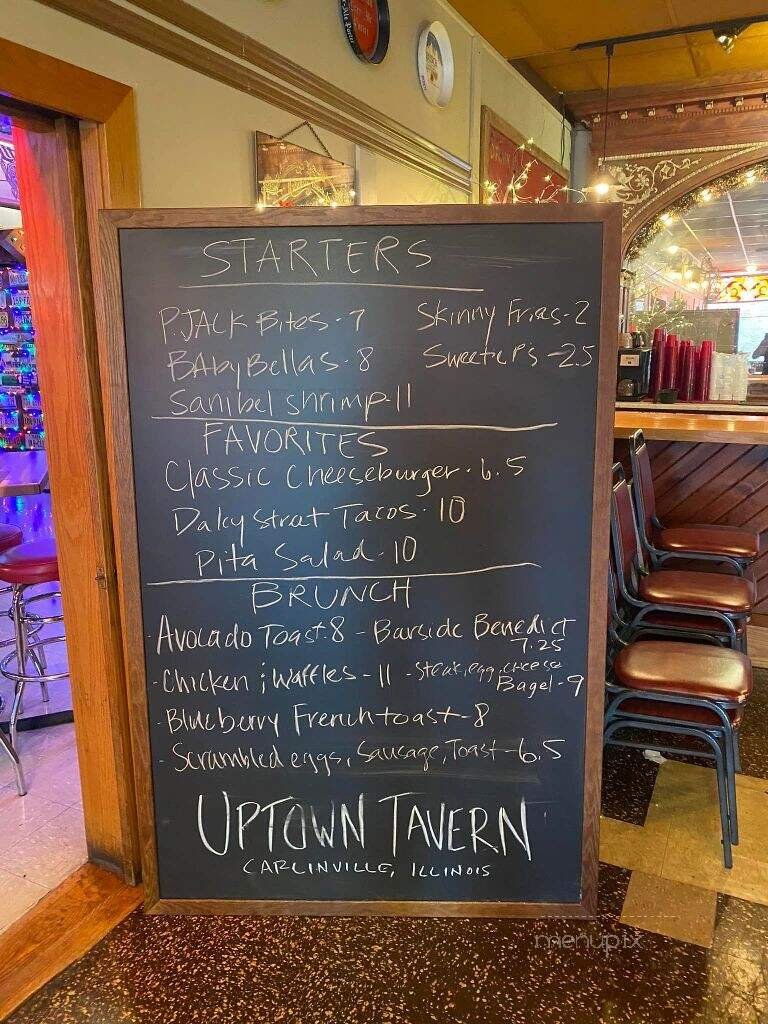 STARTERS
P.JACK Bites - 7
Skinny Fries - 2
BAby Bellas - 8
Sweete P's - 2.5
Sanibel shrimp - 11
FAVORITES
Classic Cheeseburger - 6.5
Daley Street Tacos - 10
Pita Salad - 10
BRUNCH
- Avocado Toast - 8
- Barside Benedict 7.25
- Chicken ; Waffles - 11
- Steak, egg, cheese
Bagel - 9
- Blueberry Frenchtoast - 8
- Scrambled eggs, Sausage, Toast - 6.5
UPTOWN TAVERN
CARLINVILLE, ILLINOIS
menupix